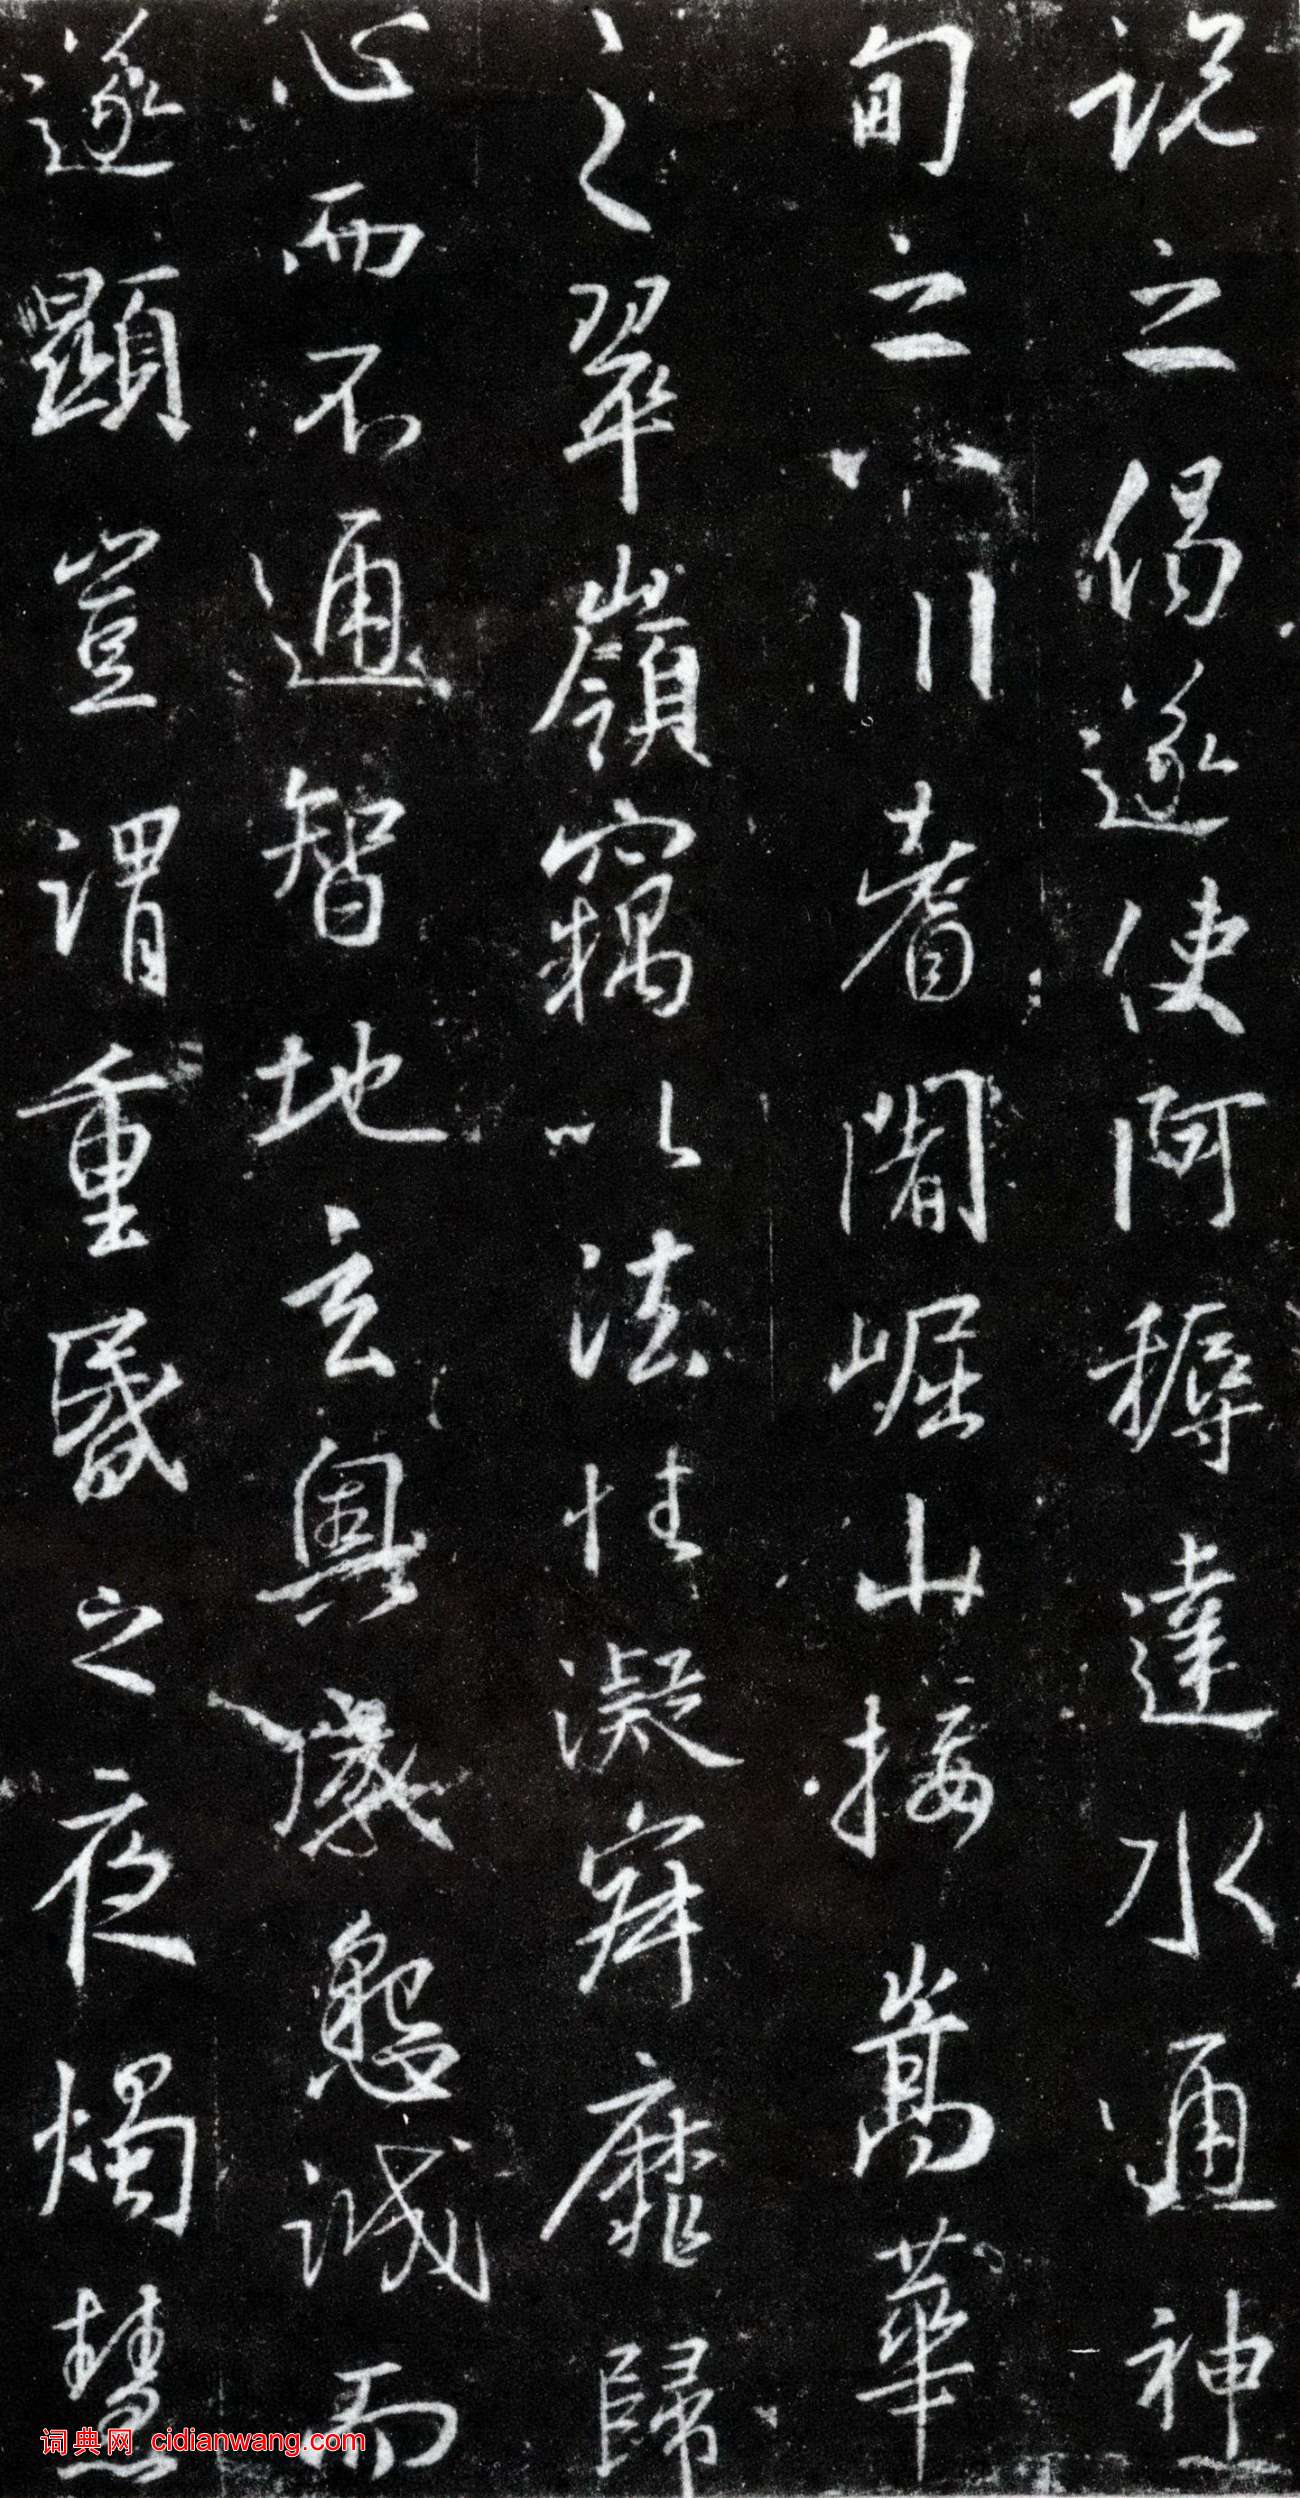 説之偈遂使阿耨達水通神
甸之八川耆闍崛山接嵩華
之翠嶺竊以法性凝寂靡歸
心而不通智地玄奧感懇誠而
遂顯豈謂重昏之夜燭慧
词典网 cidianwang.com